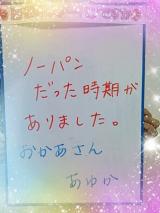 ノーパン
だった時期が
ありました。
おかあさん
あゆか